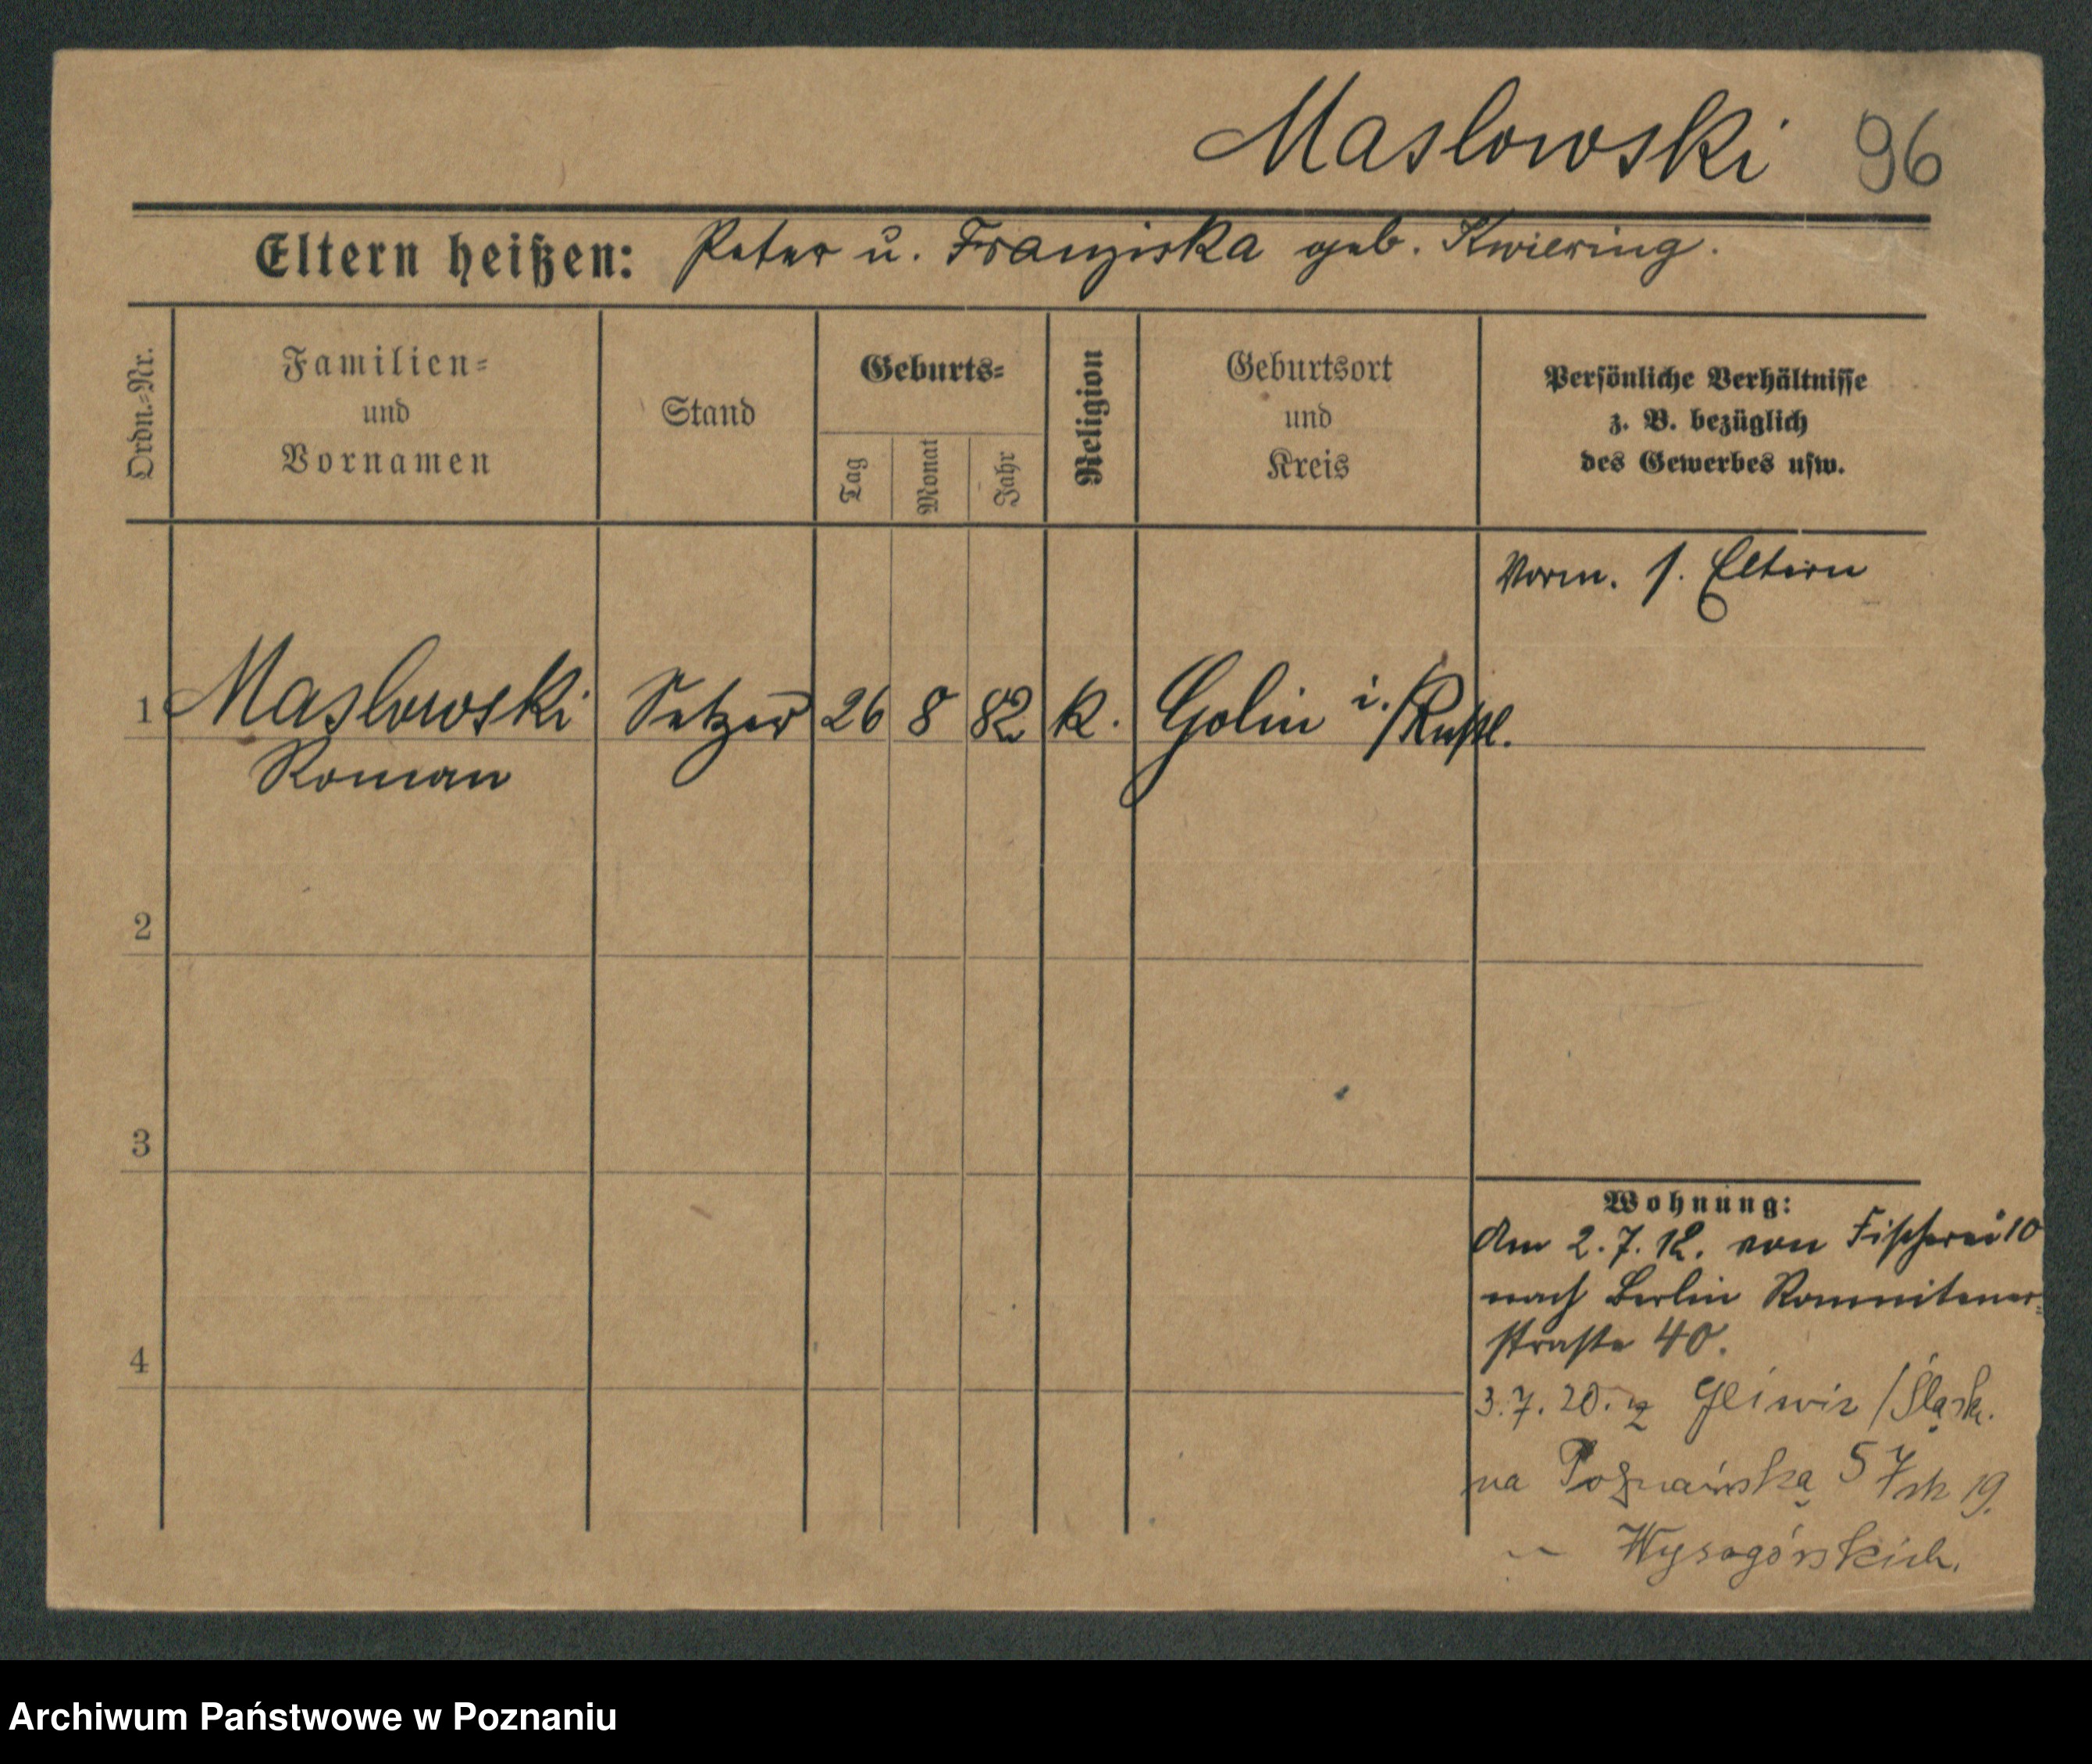 Maslowski 96
Eltern heißen: Peter u. Franziska geb. Kwiering.
Ordn.-Nr.
Familien-
und
Vornamen
Stand
Geburts-
Tag
Monat
Jahr
Religion
Geburtsort
und
Kreis
Persönliche Verhältnisse
z. B. bezüglich
des Gewerbes usw.
Vorm. s. Eltern
1 Maslowski Setzer 26 8 82 k. Golin i./Rußl.
Roman
2
3
4
Wohnung:
Am 2.7.12. von Fischerei 10
nach Berlin Romintener-
straße 40.
3.7.20. z Gliwic /Śląsk.
na Poznańską 57 19.
Wysogórskich.
Archiwum Państwowe w Poznaniu